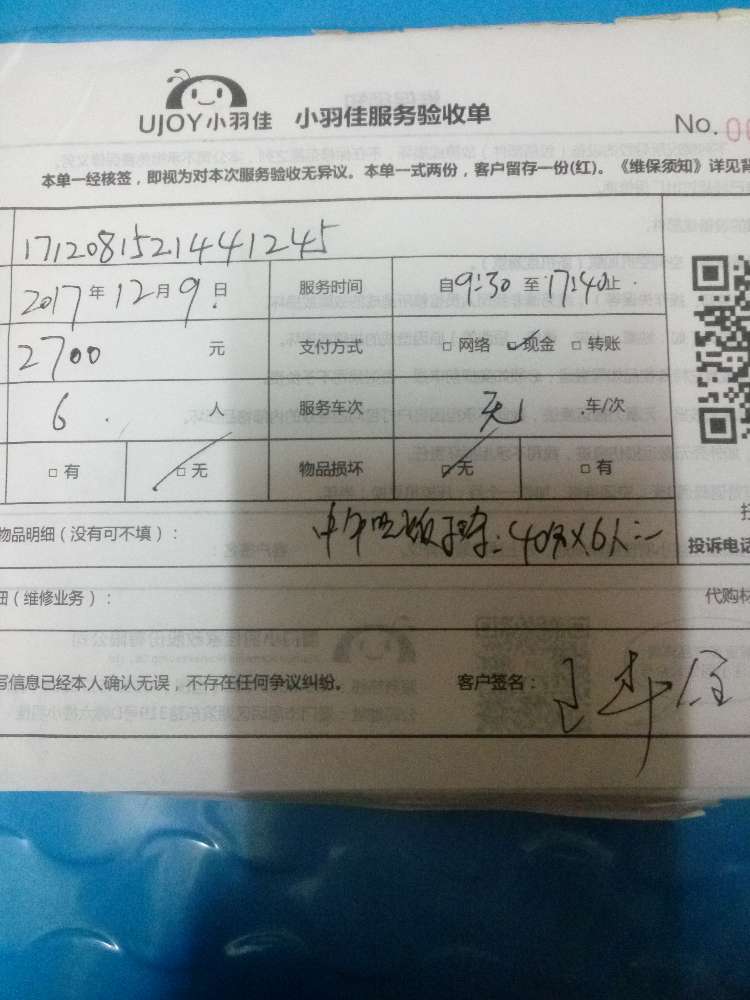 UJOY小羽佳 小羽佳服务验收单
No. 00
本单一经核签，即视为对本次服务验收无异议。本单一式两份，客户留存一份(红)。《维保须知》详见背
1712081521441245
2017年12月9日 服务时间 自9:30至17:40止
2700元 支付方式 □网络 ☑现金 □转账
6人 服务车次 无 车/次
□有 ☑无 物品损坏 ☑无 □有
物品明细（没有可不填）： 中午吃饭 40分×6人
投诉电话
细（维修业务）： 代购材
写信息已经本人确认无误，不存在任何争议纠纷。 客户签名：